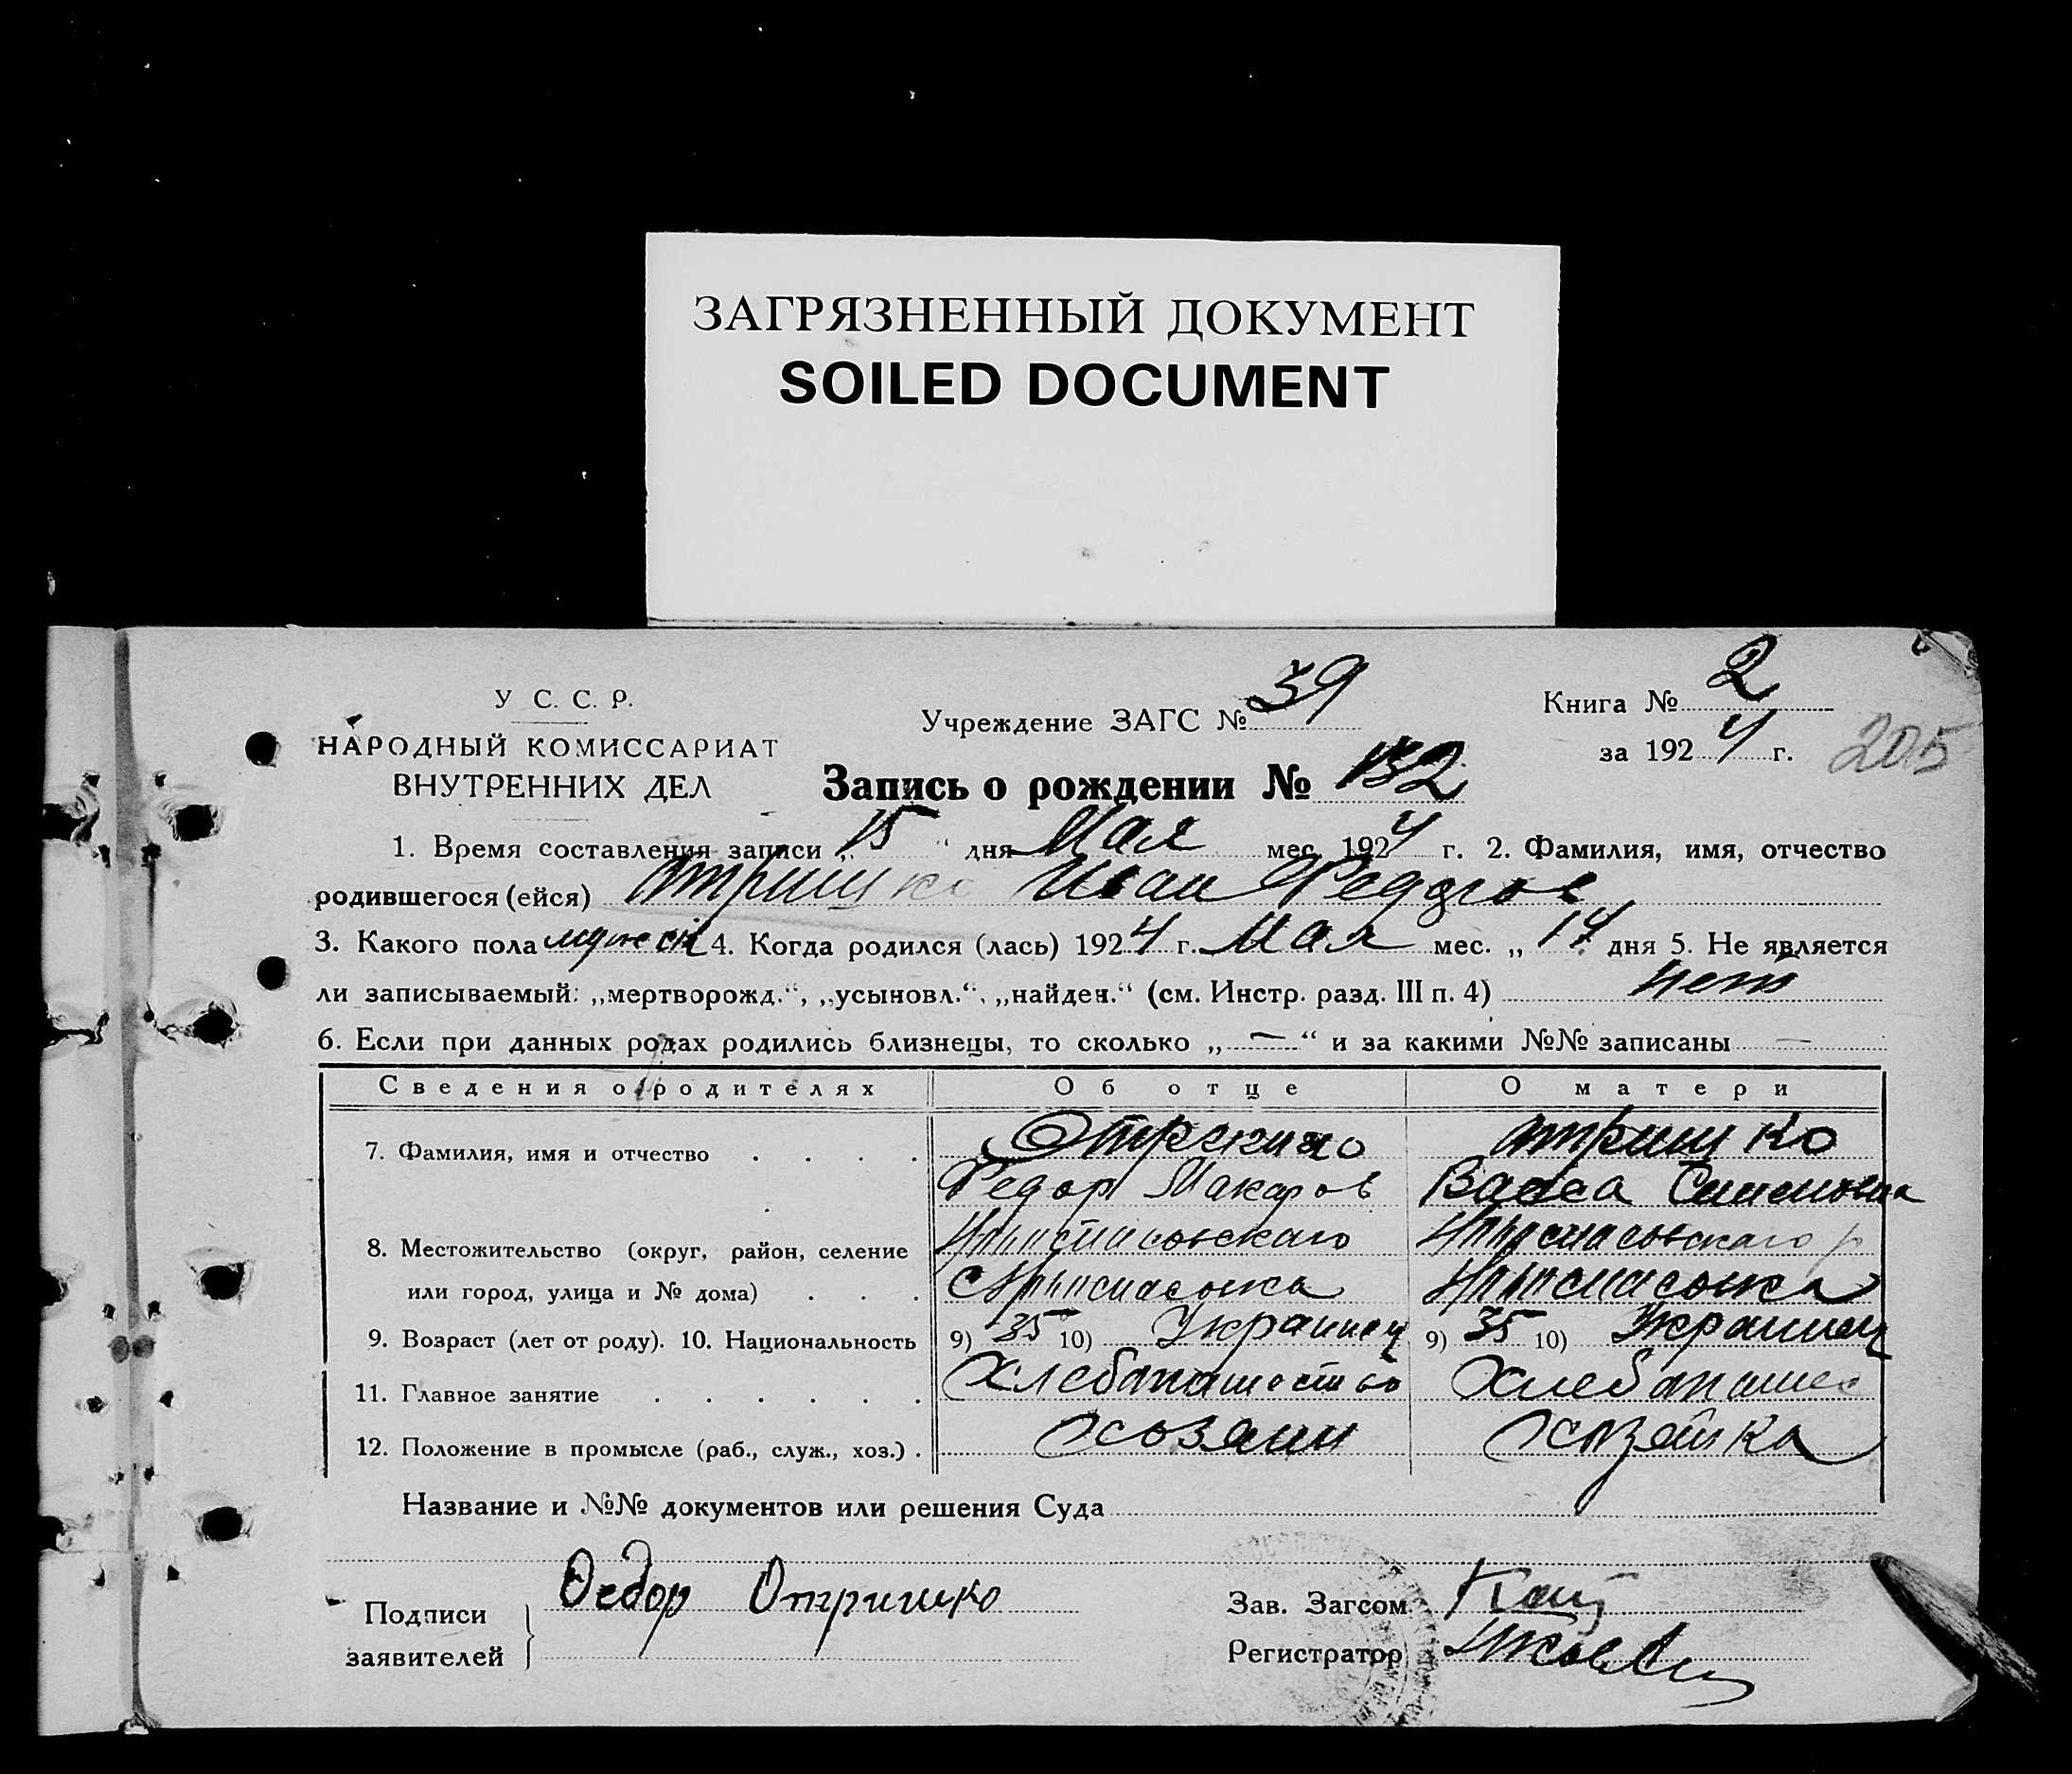 ЗАГРЯЗНЕННЫЙ ДОКУМЕНТ
SOILED DOCUMENT
У С. С. Р.
НАРОДНЫЙ КОМИССАРИАТ
ВНУТРЕННИХ ДЕЛ
Учреждение ЗАГС № 39
Книга № 2
за 1924 г.
205
Запись о рождении № 132
1. Время составления записи „15“ дня Мая мес. 1924 г. 2. Фамилия, имя, отчество
родившегося (ейся) Отришко Иван Федоров
3. Какого пола мужск 4. Когда родился (лась) 1924 г. Мая мес. „14 дня 5. Не является
ли записываемый: „мертворожд.“, „усыновл.“, „найден.“ (см. Инстр. разд. III п. 4) нет
6. Если при данных родах родились близнецы, то сколько „—“ и за какими №№ записаны —
Сведения о родителях Об отце О матери
7. Фамилия, имя и отчество Отришко
Федор Макаров Васса Семеновна
8. Местожительство (округ, район, селение
или город, улица и № дома)
9. Возраст (лет от роду). 10. Национальность 9) 35 10) Украинец 9) 35 10) Украинец
11. Главное занятие Хлебопашество Хлебопашес
12. Положение в промысле (раб., служ., хоз.) Хозяин Хозяйка
Название и №№ документов или решения Суда
Подписи
заявителей
Федор Отришко
Зав. Загсом
Регистратор